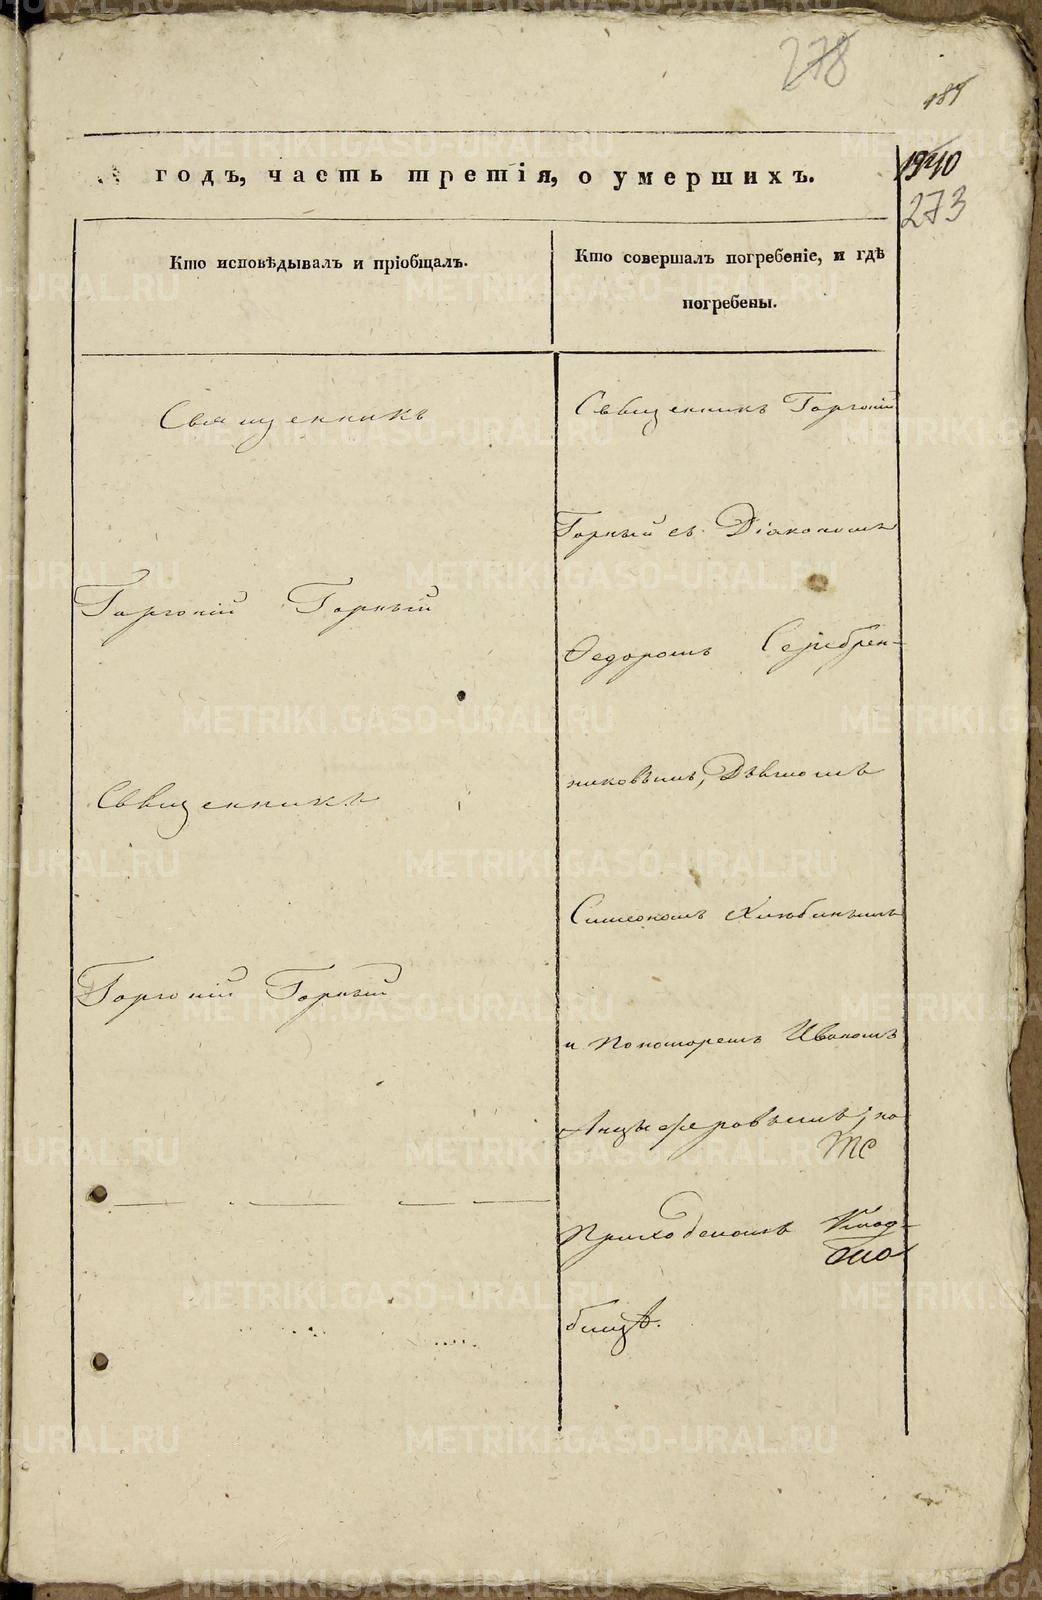 278
189
1940
273
годъ, часть третія, о умершихъ.
Кто исповѣдывалъ и пріобщалъ.
Кто совершалъ погребеніе, и гдѣ
погребены.
Священникъ
Горгоній Горный
Священникъ
Горгоній Горный
Священникъ Горгоній
Горный съ Діакономъ
Федоромъ Серебрен-
никовымъ, Дьячкомъ
Симеономъ
и Пономаремъ Иваномъ
Анцыферовымъ, на
Приходскомъ Клад-
бищѣ.
METRIKI.GASO-URAL.RU